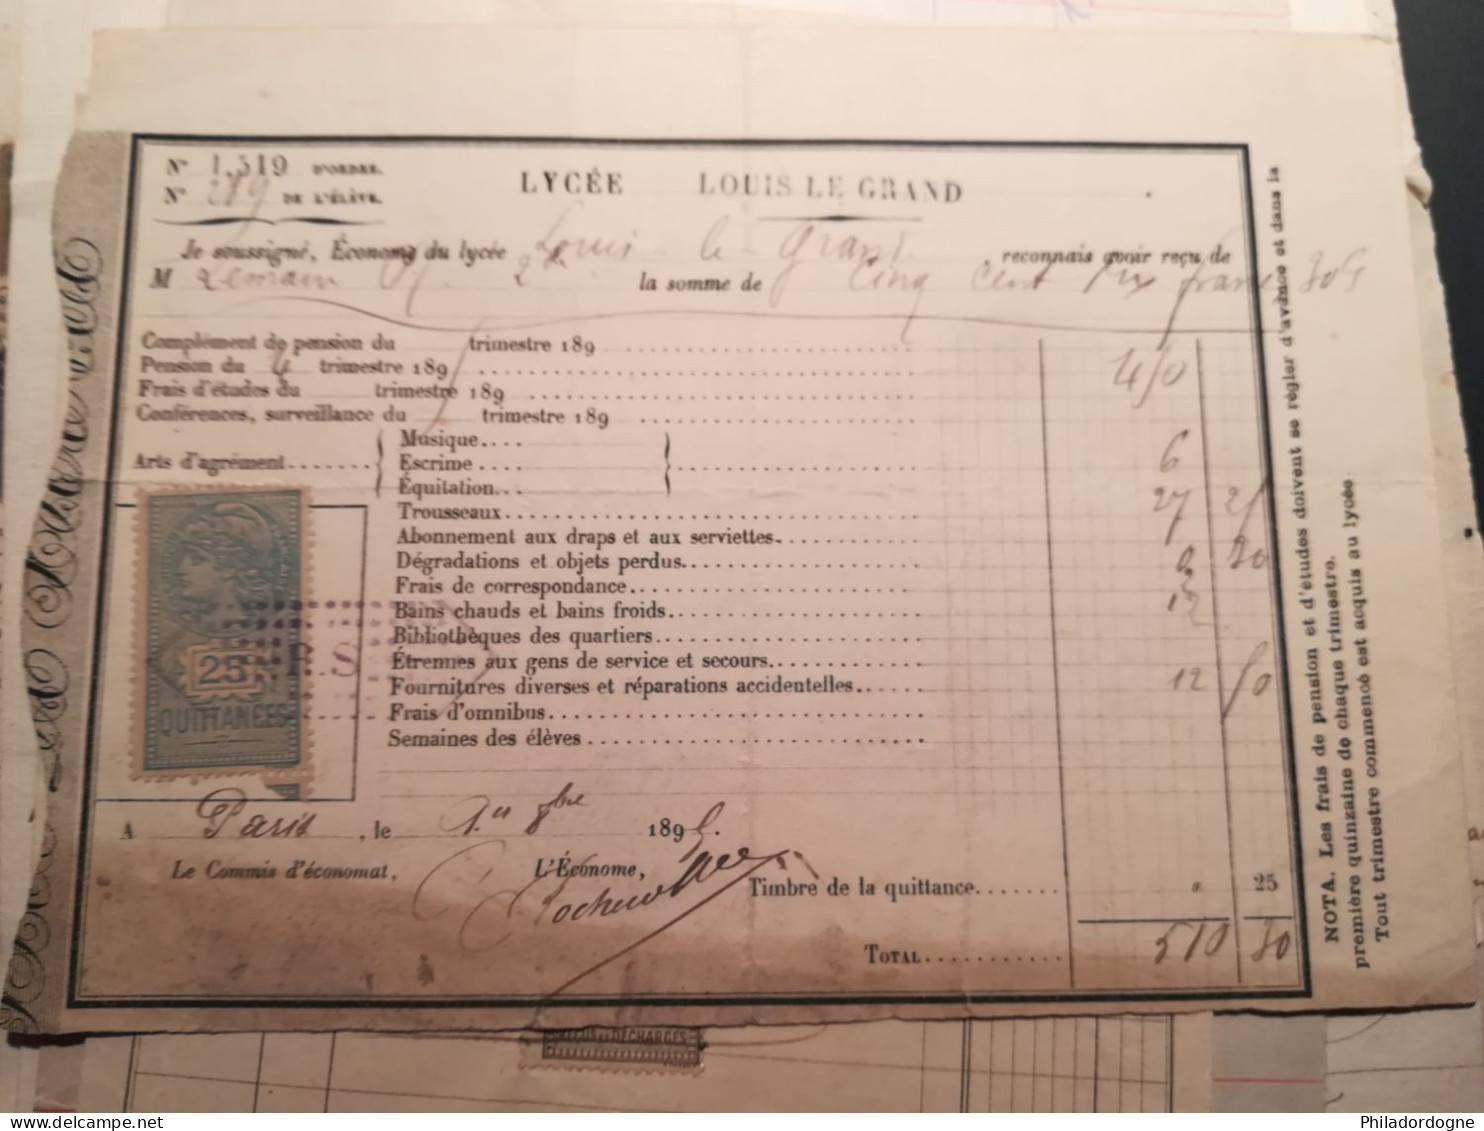 N° 1,519 D'ORDRE.
N° 289 DE L'ÉLÈVE.
LYCÉE LOUIS LE GRAND
Je soussigné, Économe du lycée Louis-le-Grand reconnais avoir reçu de
M la somme de Cinq cent dix francs 80c
Complément de pension du trimestre 189
Pension du 4 trimestre 189
Frais d'études du trimestre 189
Conférences, surveillance du trimestre 189
Arts d'agrément.......
Musique....
Escrime.... 6
Équitation...
Trousseaux 27
Abonnement aux draps et aux serviettes.
Dégradations et objets perdus.
Frais de correspondance
Bains chauds et bains froids
Bibliothèques des quartiers
Étrennes aux gens de service et secours.
Fournitures diverses et réparations accidentelles 12
Frais d'omnibus
Semaines des élèves
25
QUITTANCES
A Paris, le 1er 8bre 1895.
Le Commis d'économat,
L'Économe,
Timbre de la quittance....... " 25
TOTAL........... 510 80
NOTA. Les frais de pension et d'études doivent se régler d'avance et dans la
première quinzaine de chaque trimestre.
Tout trimestre commencé est acquis au lycée
ET DÉCHARGES
Philadordogne